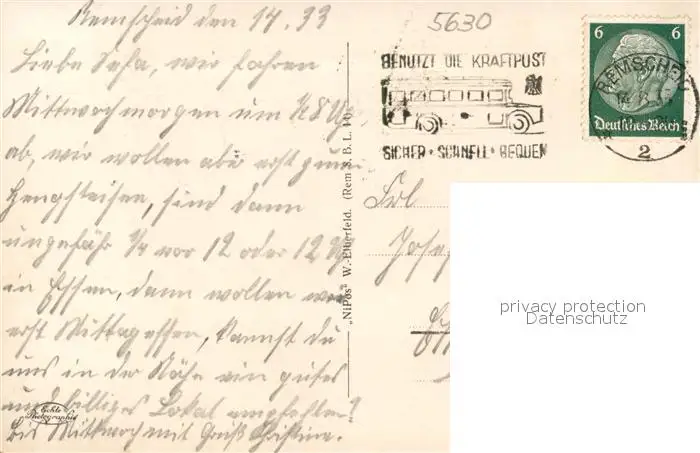 Remscheid den 14. 33
Liebe Sefa, wir fahren
Mittwochmorgen um ½8 Uhr
ab, wir wollen aber erst zum
Hengsteisen, sind dann
ungefähr ¼ vor 12 oder 12 Uhr
in Essen, dann wollen wir
erst Mittagessen, kannst du
uns in der Nähe ein gutes
und billiges Lokal empfehlen?
Bis Mittwoch mit Gruß Christine.
Echte
Photographie
"NiPos" W.-Elberfeld. (Rem S.B.L. 14)
5630
BENUTZT DIE KRAFTPOST
SICHER · SCHNELL · BEQUEM
6 6
Deutsches Reich
REMSCHEID
2
Frl
Josef
privacy protection
Datenschutz